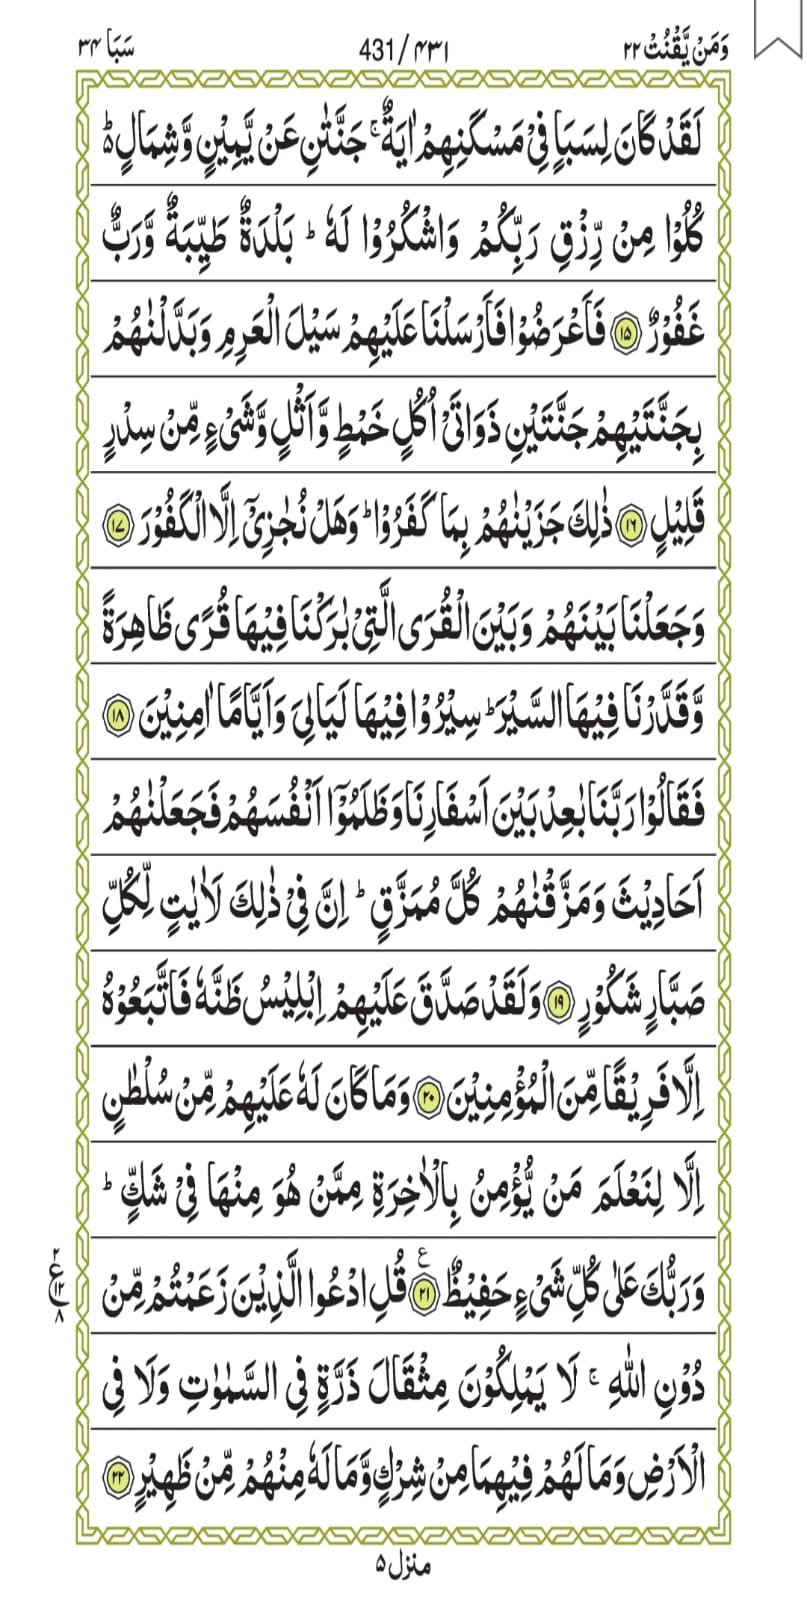 وَمَنْ يَّقْنُتْ ۲۲ ۴۳۱/431 سَبَاٍ ۳۴
لَقَدْ كَانَ لِسَبَاٍ فِيْ مَسْكَنِهِمْ اٰيَةٌ ۚ جَنَّتٰنِ عَنْ يَّمِيْنٍ وَّشِمَالٍ ۬ؕ
كُلُوْا مِنْ رِّزْقِ رَبِّكُمْ وَاشْكُرُوْا لَهٗ ؕ بَلْدَةٌ طَيِّبَةٌ وَّرَبٌّ
غَفُوْرٌ ۝۱۵ فَاَعْرَضُوْا فَاَرْسَلْنَا عَلَيْهِمْ سَيْلَ الْعَرِمِ وَبَدَّلْنٰهُمْ
بِجَنَّتَيْهِمْ جَنَّتَيْنِ ذَوَاتَيْ اُكُلٍ خَمْطٍ وَّاَثْلٍ وَّشَيْءٍ مِّنْ سِدْرٍ
قَلِيْلٍ ۝۱۶ ذٰلِكَ جَزَيْنٰهُمْ بِمَا كَفَرُوْا ؕ وَهَلْ نُجٰزِيْۤ اِلَّا الْكَفُوْرَ ۝۱۷
وَجَعَلْنَا بَيْنَهُمْ وَبَيْنَ الْقُرَى الَّتِيْ بٰرَكْنَا فِيْهَا قُرًى ظَاهِرَةً
وَّقَدَّرْنَا فِيْهَا السَّيْرَ ؕ سِيْرُوْا فِيْهَا لَيَالِيَ وَاَيَّامًا اٰمِنِيْنَ ۝۱۸
فَقَالُوْا رَبَّنَا بٰعِدْ بَيْنَ اَسْفَارِنَا وَظَلَمُوْۤا اَنْفُسَهُمْ فَجَعَلْنٰهُمْ
اَحَادِيْثَ وَمَزَّقْنٰهُمْ كُلَّ مُمَزَّقٍ ؕ اِنَّ فِيْ ذٰلِكَ لَاٰيٰتٍ لِّكُلِّ
صَبَّارٍ شَكُوْرٍ ۝۱۹ وَلَقَدْ صَدَّقَ عَلَيْهِمْ اِبْلِيْسُ ظَنَّهٗ فَاتَّبَعُوْهُ
اِلَّا فَرِيْقًا مِّنَ الْمُؤْمِنِيْنَ ۝۲۰ وَمَا كَانَ لَهٗ عَلَيْهِمْ مِّنْ سُلْطٰنٍ
اِلَّا لِنَعْلَمَ مَنْ يُّؤْمِنُ بِالْاٰخِرَةِ مِمَّنْ هُوَ مِنْهَا فِيْ شَكٍّ ؕ
وَرَبُّكَ عَلٰى كُلِّ شَيْءٍ حَفِيْظٌ ۝۲۱ ع قُلِ ادْعُوا الَّذِيْنَ زَعَمْتُمْ مِّنْ
۲ ع ۱۲ ۸
دُوْنِ اللّٰهِ ۚ لَا يَمْلِكُوْنَ مِثْقَالَ ذَرَّةٍ فِي السَّمٰوٰتِ وَلَا فِي
الْاَرْضِ وَمَا لَهُمْ فِيْهِمَا مِنْ شِرْكٍ وَّمَا لَهٗ مِنْهُمْ مِّنْ ظَهِيْرٍ ۝۲۲
منزل ۵